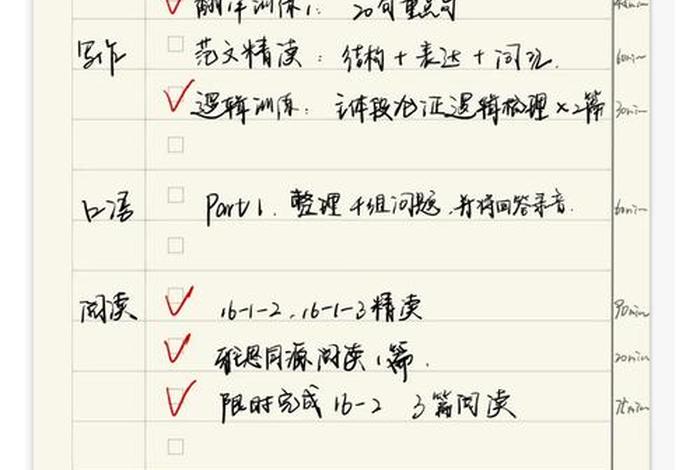 翻译训练1: 20句重点句
写作 范文精读: 结构+表达+词汇. 60min
逻辑训练: 主体段论证逻辑梳理×2篇 30min
口语 Part 1. 整理十组问题,并将回答录音. 60min
阅读 16-1-2, 16-1-3精读 90min
雅思同源阅读1篇. 20min
限时完成16-2 3篇阅读 75min